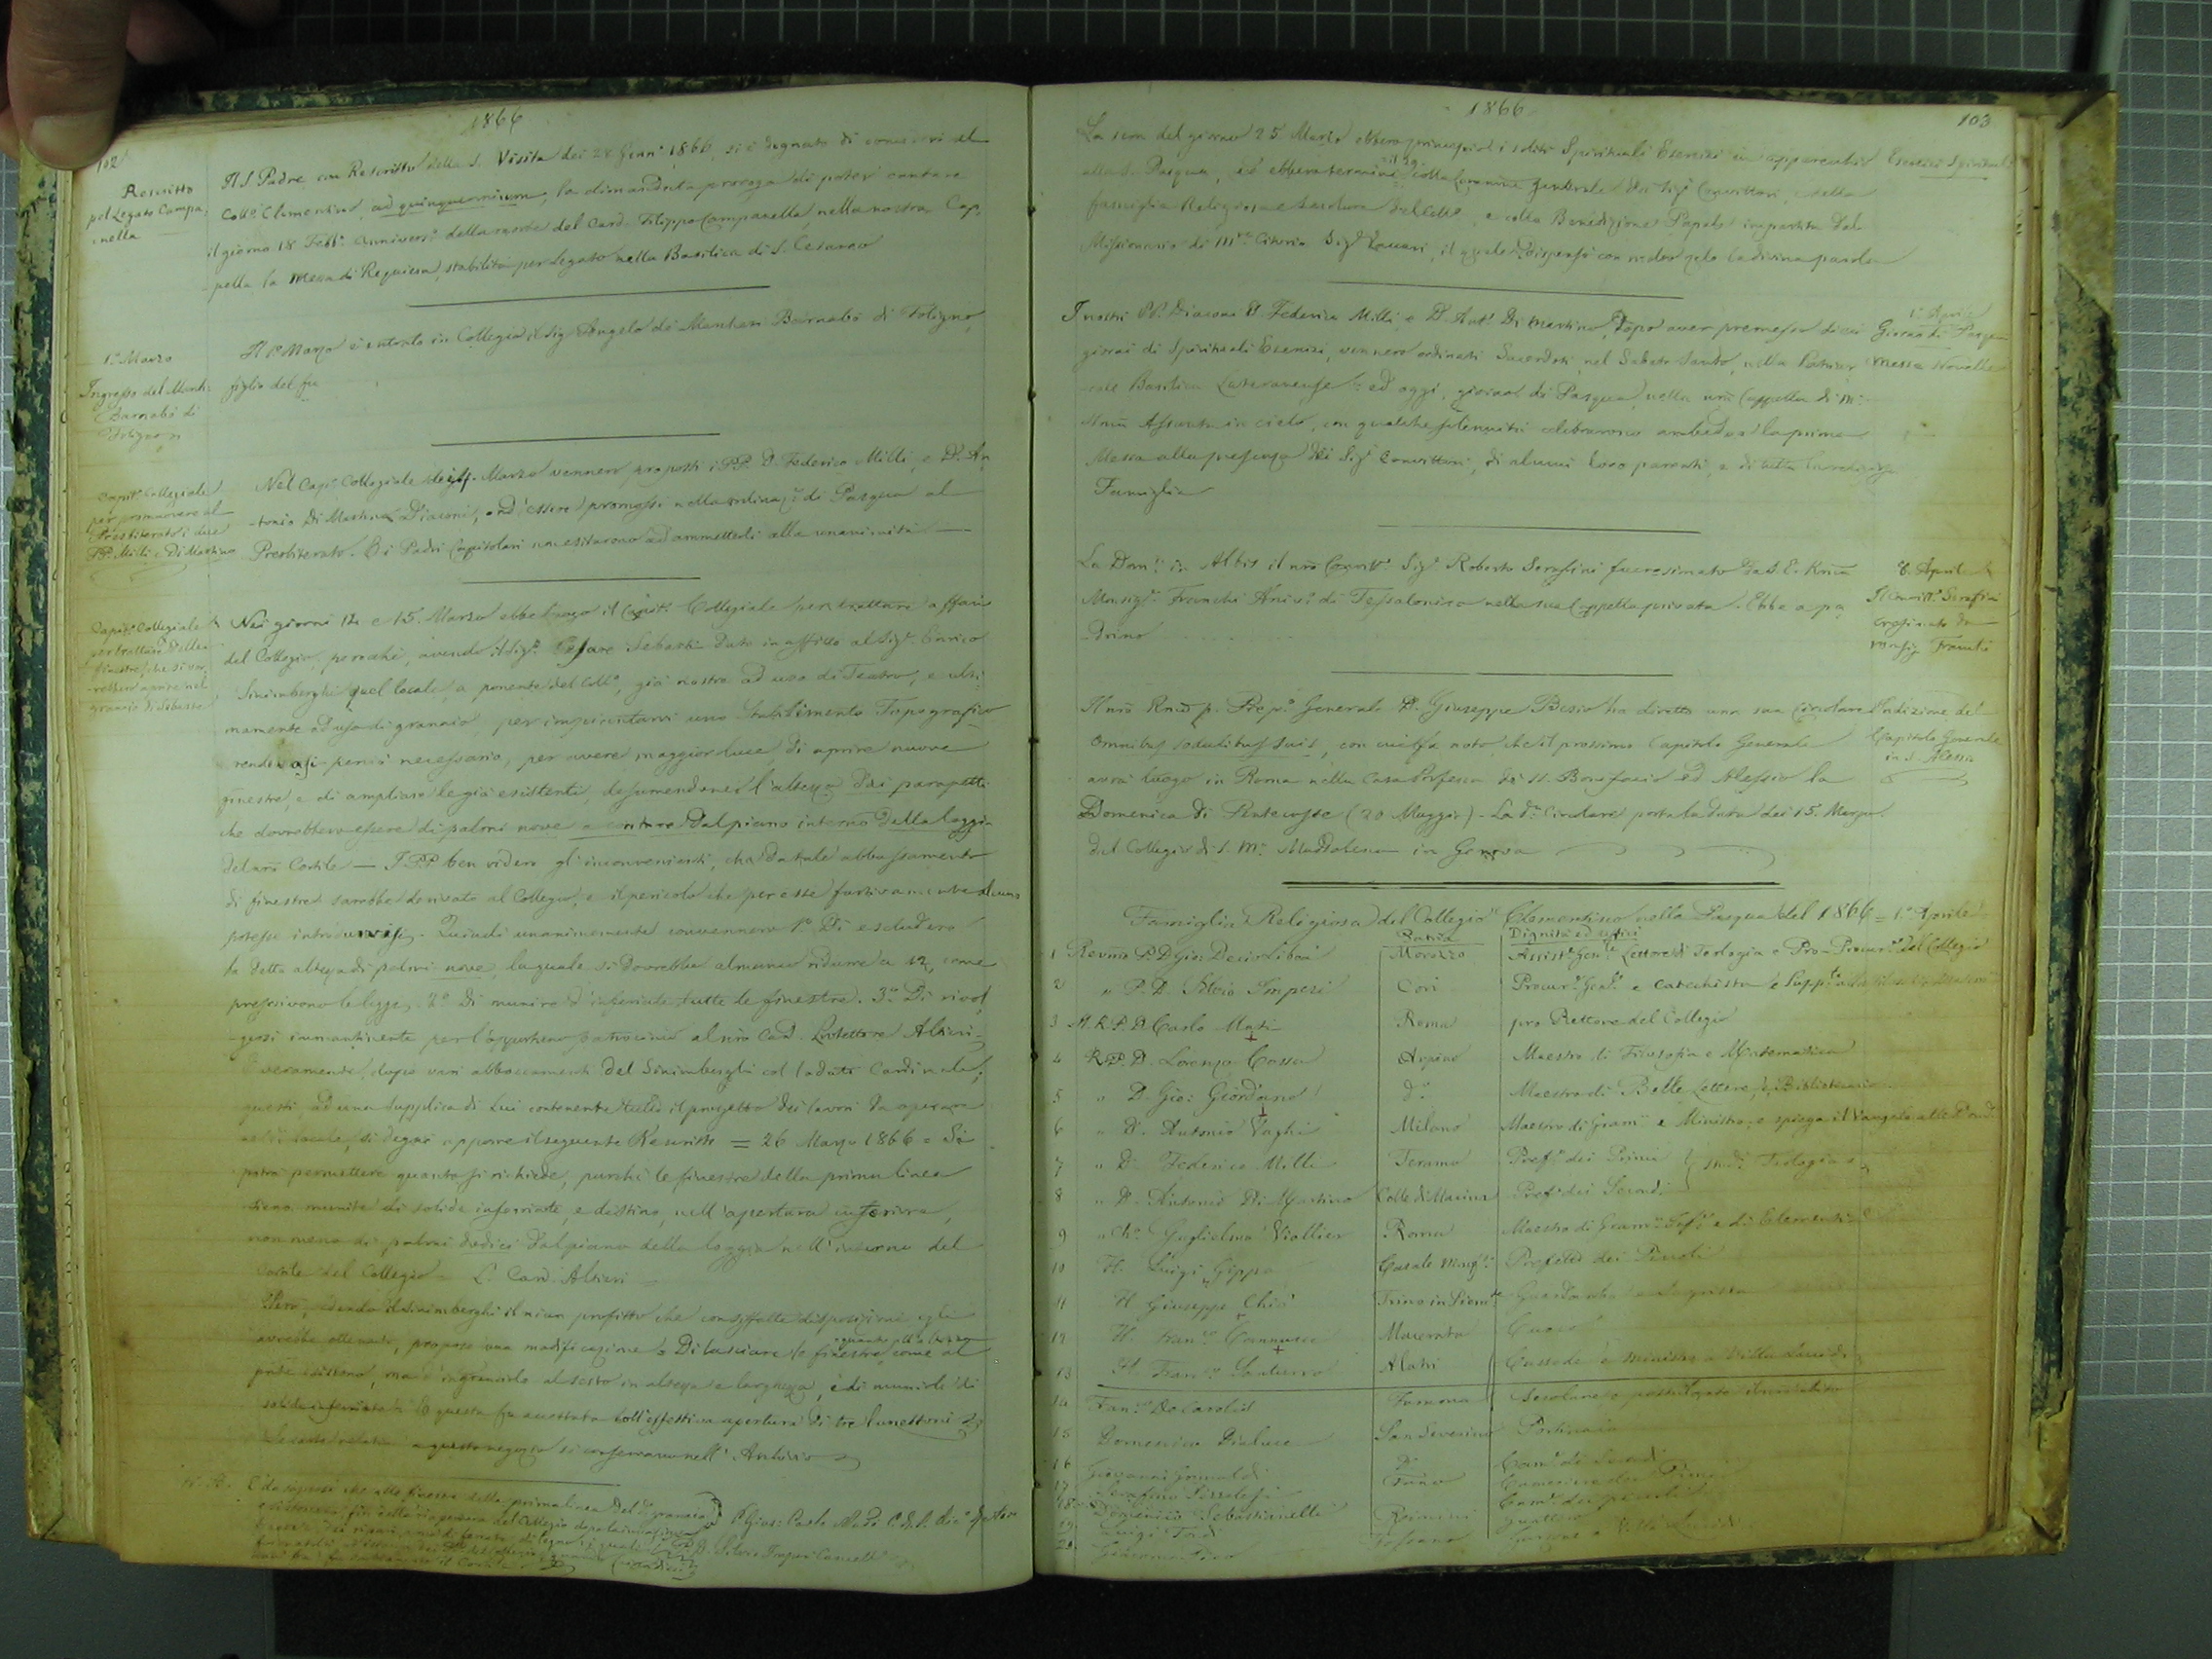 102
1866
Rescritto
pel Legato Campa-
nella
Il S. Padre con Rescritto della S. Visita dei 28 Genn.o 1866, si è degnato di al
Coll.o Clementino, ad quinquennium, la dimandata proroga di poter cantare
il giorno 18 Febb.o annivers.o della morte del Card. Filippo Campanella, nella nostra Cap-
pella la Messa di Requiem, stabilita per Legato nella Basilica di S. Cesareo
1.o Marzo
Ingresso del March.
Barnabò di
Foligno
Il 1.o Marzo è entrato in Collegio il Sig. Angelo de' Marchesi Barnabò di Foligno,
figlio del fu
Capit.o Collegiale
per promuovere al
Presbiterato i due
PP. Milli e Di Martino
Nel Cap.o Collegiale Marzo vennero proposti i PP. D. Federico Milli, e D. An-
tonio Di Martino Diaconi, ond'essere promossi nella ordinaz.e di Pasqua al
Presbiterato. E i Padri Capitolari non esitarono ad ammetterli alla unanimità
Capit.o Collegiale
per trattare delle
finestre, che si vor-
rebbero aprire nel
granaio di Sebasti
Nei giorni 12 e 15 Marzo ebbe luogo il Capit.o Collegiale per trattare affari
del Collegio, perocchè, avendo il Sig.r Cesare Sebasti dato in affitto al Sig.r Enrico
Sinimberghi quel locale, a ponente del Coll.o, già nostro ad uso di Teatro, e ulti-
mamente ad uso di granaio, per impiantarvi uno Stabilimento Topografico
rendevasi perciò necessario, per avere maggior luce, di aprire nuove
finestre, e di ampliare le già esistenti, desumendone l'altezza dai parapetti
che dovrebbero essere di palmi nove a contare dal piano interno della loggia
del nro Cortile — I PP. ben videro gl'inconvenienti, che da tale abbassamento
di finestre sarebbe derivato al Collegio, e il pericolo che per esse furtivamente alcuno
potesse introdursi. Quindi unanimemente convennero 1.o Di escludere
la detta altezza di palmi nove, la quale si dovrebbe almeno ridurre a 12, come
prescrivono le leggi. 2.o Di munire d'inferriate tutte le finestre. 3.o Di rivol-
gersi immantinente per l'opportuno patrocinio al nro Card. Protettore Altieri.
E veramente, dopo vari abboccamenti del Sinimberghi col lodato Cardinale,
questi, ad una supplica di Lui contenente tutto il progetto dei lavori da operare
nel d.o locale, si degnò apporre il seguente Rescritto = 26 Marzo 1866 = Si
potrà permettere quanto si richiede, purchè le finestre della prima linea
sieno munite di solide inferriate, e distino, nell'apertura inferiore,
non meno di palmi dodici dal piano della loggia nell'interno del
Cortile del Collegio = L. Card. Altieri =
Però, vedendo il Sinimberghi il niun profitto che consiffatte disposizioni egli
avrebbe ottenuto, propose una modificazione = Di lasciare le finestre, quanto all'altezza, come al
presente esistono, ma d'ingrandirle al sesto in altezza e larghezza, e di munirle di
solide inferriate = E questa fu accettata coll'effettiva apertura di tre lunettoni
Le carte relative a questo negozio si conservano nell'Archivio
N. B. che alle finestre della prima linea del d.o granaio
P. Gius. Carlo Masi C.R.S. Rettore
D. Silvio Imperi Cancell.e
1866
103
La sera del giorno 25 Marzo ebbero principio i soliti Spirituali Esercizi in apparecchio
Esercizi Spirituali
alla S. Pasqua, ed ebbero termine il 29 colla Comunione generale dei Sig.ri Convittori, della
famiglia Religiosa e Secolare del Coll.o, e colla Benedizione Papale impartita dal
Missionario di M.te Citorio Sig.r , il quale dispensò con molto zelo la divina parola
I nostri PP. Diaconi D. Federico Milli e D. Ant.o Di Martino, dopo aver premesso dieci
1.o Aprile
Giorno di Pasqua
Messe Novelle
giorni di Spirituali Esercizi, vennero ordinati Sacerdoti nel Sabato Santo, nella Patriar-
cale Basilica Lateranense: ed oggi, giorno di Pasqua, nella nra Cappella di M.a
SSma Assunta in cielo, con qualche solennità celebrarono ambedue la prima
Messa alla presenza dei Sig.ri Convittori, di alcuni loro parenti, e di tutta la religiosa
Famiglia
8. Aprile
Il Convitt.e Serafini
cresimato da
Monsig. Franchi
La Dom.a in Albis il nro Convitt.e Sig.r Roberto Serafini fu cresimato da S. E. Rma
Monsig.r Franchi Arciv.o di Tessalonica nella sua Cappella privata. Ebbe a pa-
drino
Indizione del
Capitolo Generale
in S. Alessio
Il nro Rmo P. Prep.o Generale D. Giuseppe Besio ha diretto una sua Circolare
Omnibus sodalibus suis, con cui fa noto che il prossimo Capitolo Generale
avrà luogo in Roma nella Casa Professa dei SS. Bonifacio ed Alessio la
Domenica di Pentecoste (20 Maggio) - La d.a Circolare porta la data dei 15. Marzo.
dal Collegio di S. M.a Maddalena in Genova
Famiglia Religiosa del Collegio Clementino nella Pasqua del 1866 = 1.o Aprile
Patria
Dignità ed uffici
1 Revmo P. D. Gio: Decio Libois Morozzo Assist.e Gen.le Lettore di Teologia e Pro-Procur.e del Collegio
2 " P. D. Silvio Imperi Cori Procur.e Gen.le e Catechista e Supp.te
3 M. R. P. D. Carlo Masi Roma pro Rettore del Collegio
4 R. P. D. Lorenzo Cossa Arpino Maestro di Filosofia e Matematica
5 " D. Gio: Giordano d.o Maestro di Belle Lettere, e Bibliotecario
6 " D. Antonio Vaghi Milano Maestro di Gram.a e Ministro, e spiega il Vangelo alle Dom.e
7 " D. Federico Milli Teramo Pref.o dei Primi stud.i Teologia
8 " D. Antonio Di Martino Colle di Macina Pref.o dei Secondi
9 " Ch.o Guglielmo Viollier Roma Maestro di Gram.a Inf.e e di Elementi
10 H. Luigi Gippa Casale Monf.o Prefetto dei Piccoli
11 H. Giuseppe Chiò Trino in Piem.te Guardaroba
12 H. Fran.co Macerata Cuoco
13 H. Fran.co Santurro Alatri Custode e Ministro a Villa Lucidi
14 Fran.co De Carolis Famona Secolare
15 Domenico Dialuce San Severino Portinaio
16 Giovanni Grimaldi d.o Cam.e de' Secondi
17 Serafino Fano Cameriere dei Primi
18 Domenico Sebastianelli Cam.e dei piccoli
19 Luigi Tordi Rimini
20 Giacomo Toscano Villa Lucidi